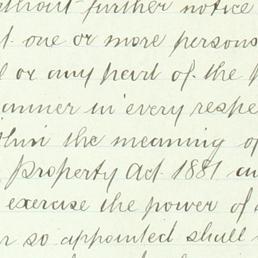 without further notice
one or more persons
or any part of the
manner in every respe
within the meaning of
Property Act 1881 an
exercise the power of
so appointed shall